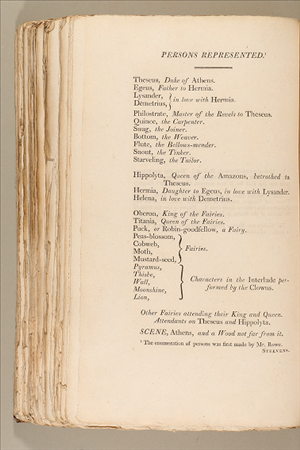 PERSONS REPRESENTED.¹
Theseus, Duke of Athens.
Egeus, Father to Hermia.
Lysander,
Demetrius, } in love with Hermia.
Philostrate, Master of the Revels to Theseus.
Quince, the Carpenter.
Snug, the Joiner.
Bottom, the Weaver.
Flute, the Bellows-mender.
Snout, the Tinker.
Starveling, the Tailor.
Hippolyta, Queen of the Amazons, betrothed to
Theseus.
Hermia, Daughter to Egeus, in love with Lysander.
Helena, in love with Demetrius.
Oberon, King of the Fairies.
Titania, Queen of the Fairies.
Puck, or Robin-goodfellow, a Fairy.
Peas-blossom,
Cobweb,
Moth,
Mustard-seed, } Fairies.
Pyramus,
Thisbe,
Wall,
Moonshine,
Lion, } Characters in the Interlude per-
formed by the Clowns.
Other Fairies attending their King and Queen.
Attendants on Theseus and Hippolyta.
SCENE, Athens, and a Wood not far from it.
¹ The enumeration of persons was first made by Mr. Rowe.
STEEVENS.